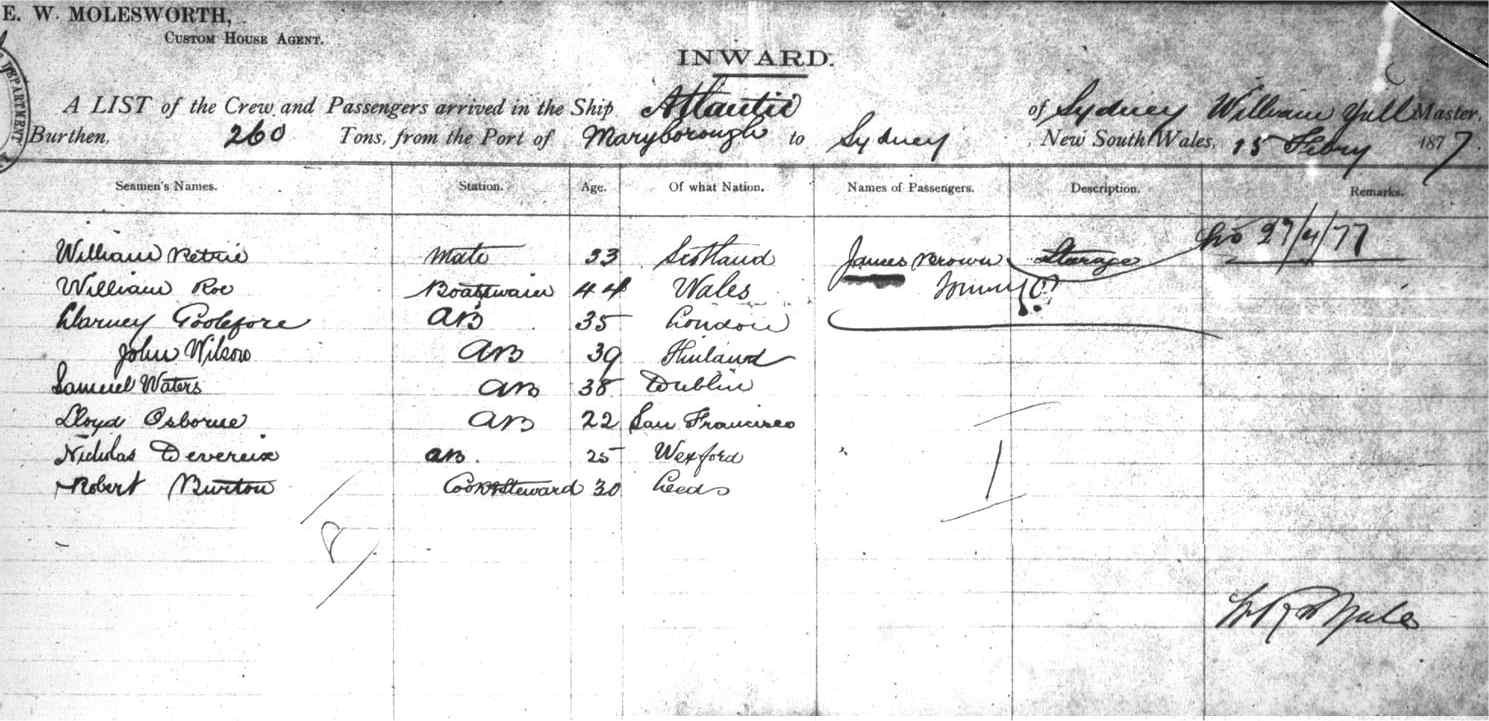 E. W. MOLESWORTH,
CUSTOM HOUSE AGENT.
DEPARTMENT
INWARD.
A LIST of the Crew and Passengers arrived in the Ship Atlantic of Sydney William Yull Master,
Burthen, 260 Tons, from the Port of Maryborough to Sydney, New South Wales, 15 Febry 1877.
Seamen's Names. Station. Age. Of what Nation. Names of Passengers. Description. Remarks.
27/4/77
William Petrie Mate 33 Scotland James Brown Storage
William Roe Boatswain 44 Wales
35 London
John Wilson AB 39 Finland
Samuel Waters AB 38 Dublin
Lloyd Osborne AB 22 San Francisco
Nicholas Devereix AB. 25 Wexford
Robert Burton Cook & Steward 30 Leeds
8 1